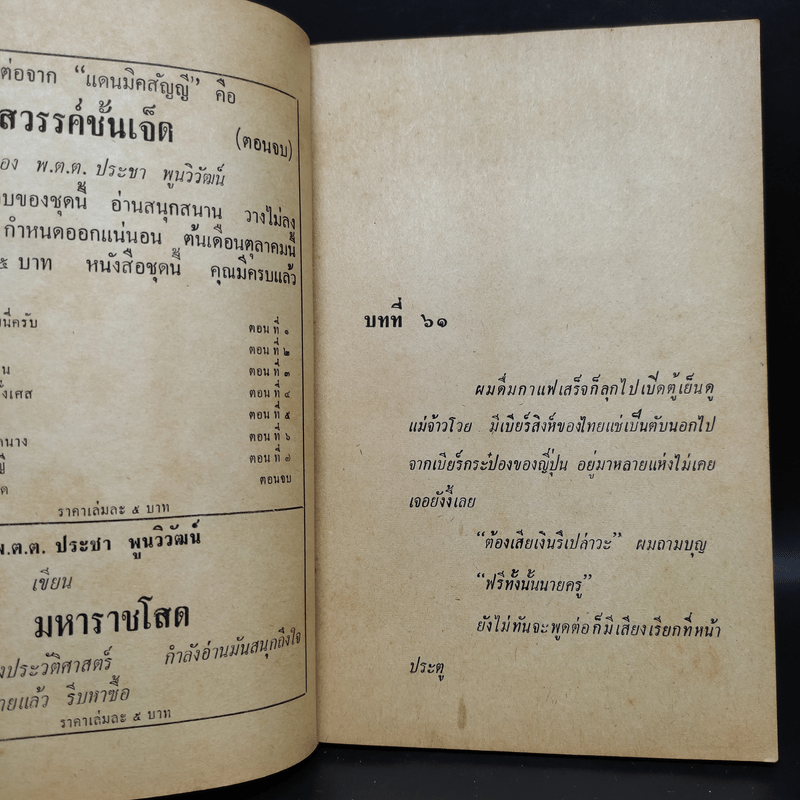 ต่อจาก “แดนมิคสัญญี” คือ
สวรรค์ชั้นเจ็ด (ตอนจบ)
พ.ต.ต. ประชา พูนวิวัฒน์
บของชุดนี้ อ่านสนุกสนาน วางไม่ลง
กำหนดออกแน่นอน ต้นเดือนตุลาคมนี้
๕ บาท หนังสือชุดนี้ คุณมีครบแล้ว
นี่ครับ ตอนที่ ๑
ตอนที่ ๒
น ตอนที่ ๓
ั่งเศส ตอนที่ ๔
ตอนที่ ๕
นาง ตอนที่ ๖
ี ตอนที่ ๗
ด ตอนจบ
ราคาเล่มละ ๕ บาท
พ.ต.ต. ประชา พูนวิวัฒน์
เขียน
มหาราชโสด
งประวัติศาสตร์ กำลังอ่านมันสนุกถึงใจ
ายแล้ว รีบหาซื้อ
ราคาเล่มละ ๕ บาท
บทที่ ๖๑
ผมดื่มกาแฟเสร็จก็ลุกไปเปิดตู้เย็นดู
แม่จ้าวโวย มีเบียร์สิงห์ของไทยแช่เป็นตับนอกไป
จากเบียร์กระป๋องของญี่ปุ่น อยู่มาหลายแห่งไม่เคย
เจอยังงี้เลย
“ต้องเสียเงินรึเปล่าวะ” ผมถามบุญ
“ฟรีทั้งนั้นนายครู”
ยังไม่ทันจะพูดต่อก็มีเสียงเรียกที่หน้า
ประตู